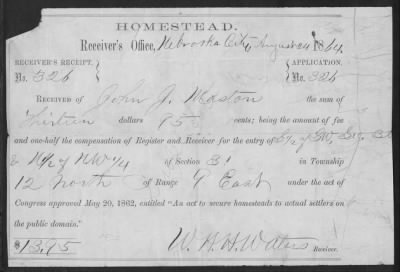 HOMESTEAD.
Receiver's Office, Nebraska City August 24 1864
RECEIVER'S RECEIPT, APPLICATION,
No. 326 No. 326
RECEIVED OF John J. Maston the sum of
Thirteen dollars 95 cents; being the amount of fee
and one-half the compensation of Register and Receiver for the entry of S½ of SW,
& N½ of NW¼ of Section 31 in Township
12 North of Range 9 East under the act of
Congress approved May 20, 1862, entitled "An act to secure homesteads to actual settlers on
the public domain."
$13.95 W. H. H. Waters Receiver.